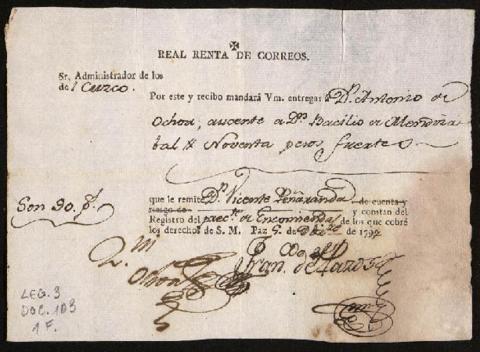 REAL RENTA DE CORREOS.
Sr. Administrador de los
de l Cuzco.
Por este y recibo mandará Vm. entregar á Dn. Antonio de
Ochoa, ausente a Dn. Basilio de Mendi
bal Noventa pesos fuertes
que le remite Dn. Vicente Peñaranda de cuenta y
riesgo de y constan del
Son 90. ps.
Registro del de Encomiendas de los que cobré
los derechos de S. M. Paz 5 de Dize. de 1794
Fran. de
LEG. 3
DOC. 103
1 F.